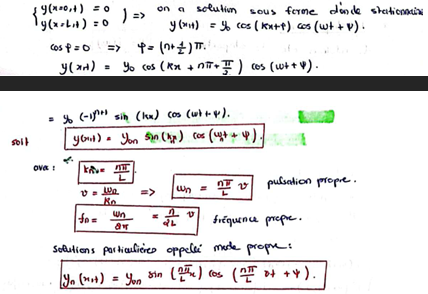 { y(x=0,t) = 0
y(x=L,t) = 0 } => on a solution sous forme d'onde stationnaire
y(x,t) = y₀ cos(kx+φ) cos(ωt + ψ).
cos φ = 0 => φ = (n+½)π.
y(x,t) = y₀ cos(kx + nπ + π/2) cos(ωt + ψ).
= y₀ (-1)ⁿ⁺¹ sin(kx) cos(ωt + ψ).
soit y(x,t) = y₀ₙ sin(kₙx) cos(ωₙt + ψ).
avec : kₙ = nπ/L
v = ωₙ/kₙ => ωₙ = nπ/L v pulsation propre.
fₙ = ωₙ/2π = n/2L v fréquence propre.
solutions particulières appelée mode propre :
yₙ(x,t) = y₀ₙ sin(nπ/L x) cos(nπ/L vt + ψ).